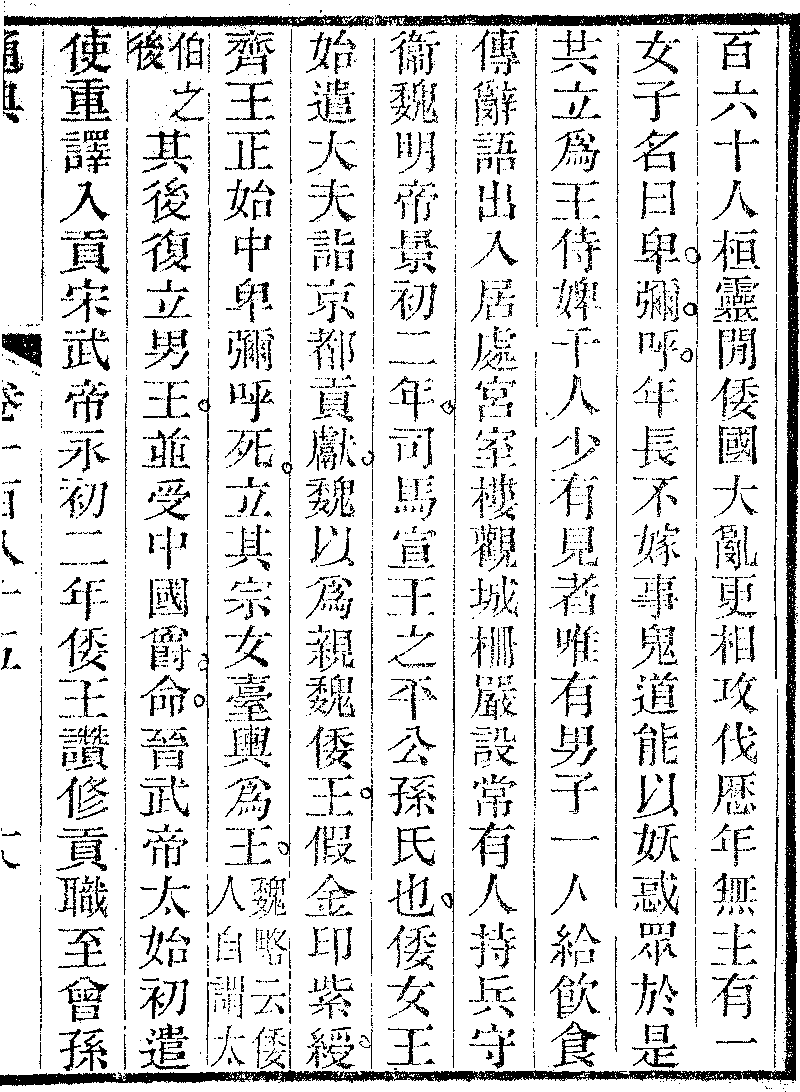 百六十人桓靈閒倭國大亂更相攻伐歷年無主有一
女子名曰卑。彌。呼。年長不嫁事鬼道能以妖惑眾於是
共立爲王侍婢千人少有見者唯有男子一人給飲食
傳辭語出入居處宮室樓觀城柵嚴設常有人持兵守
衞魏明帝景初二年。司馬宣王之平公孫氏也。倭女王
始遣大夫詣京都貢獻。魏以爲親魏倭王。假金印紫綬。
齊王正始中卑彌呼死。立其宗女臺輿爲王。魏略云倭人自謂太
伯之後其後復立男王。並受中國爵。命。晉武帝太始初遣
使重譯入貢宋武帝永初二年倭王讚修貢職至曾孫
通典 卷一百八十五